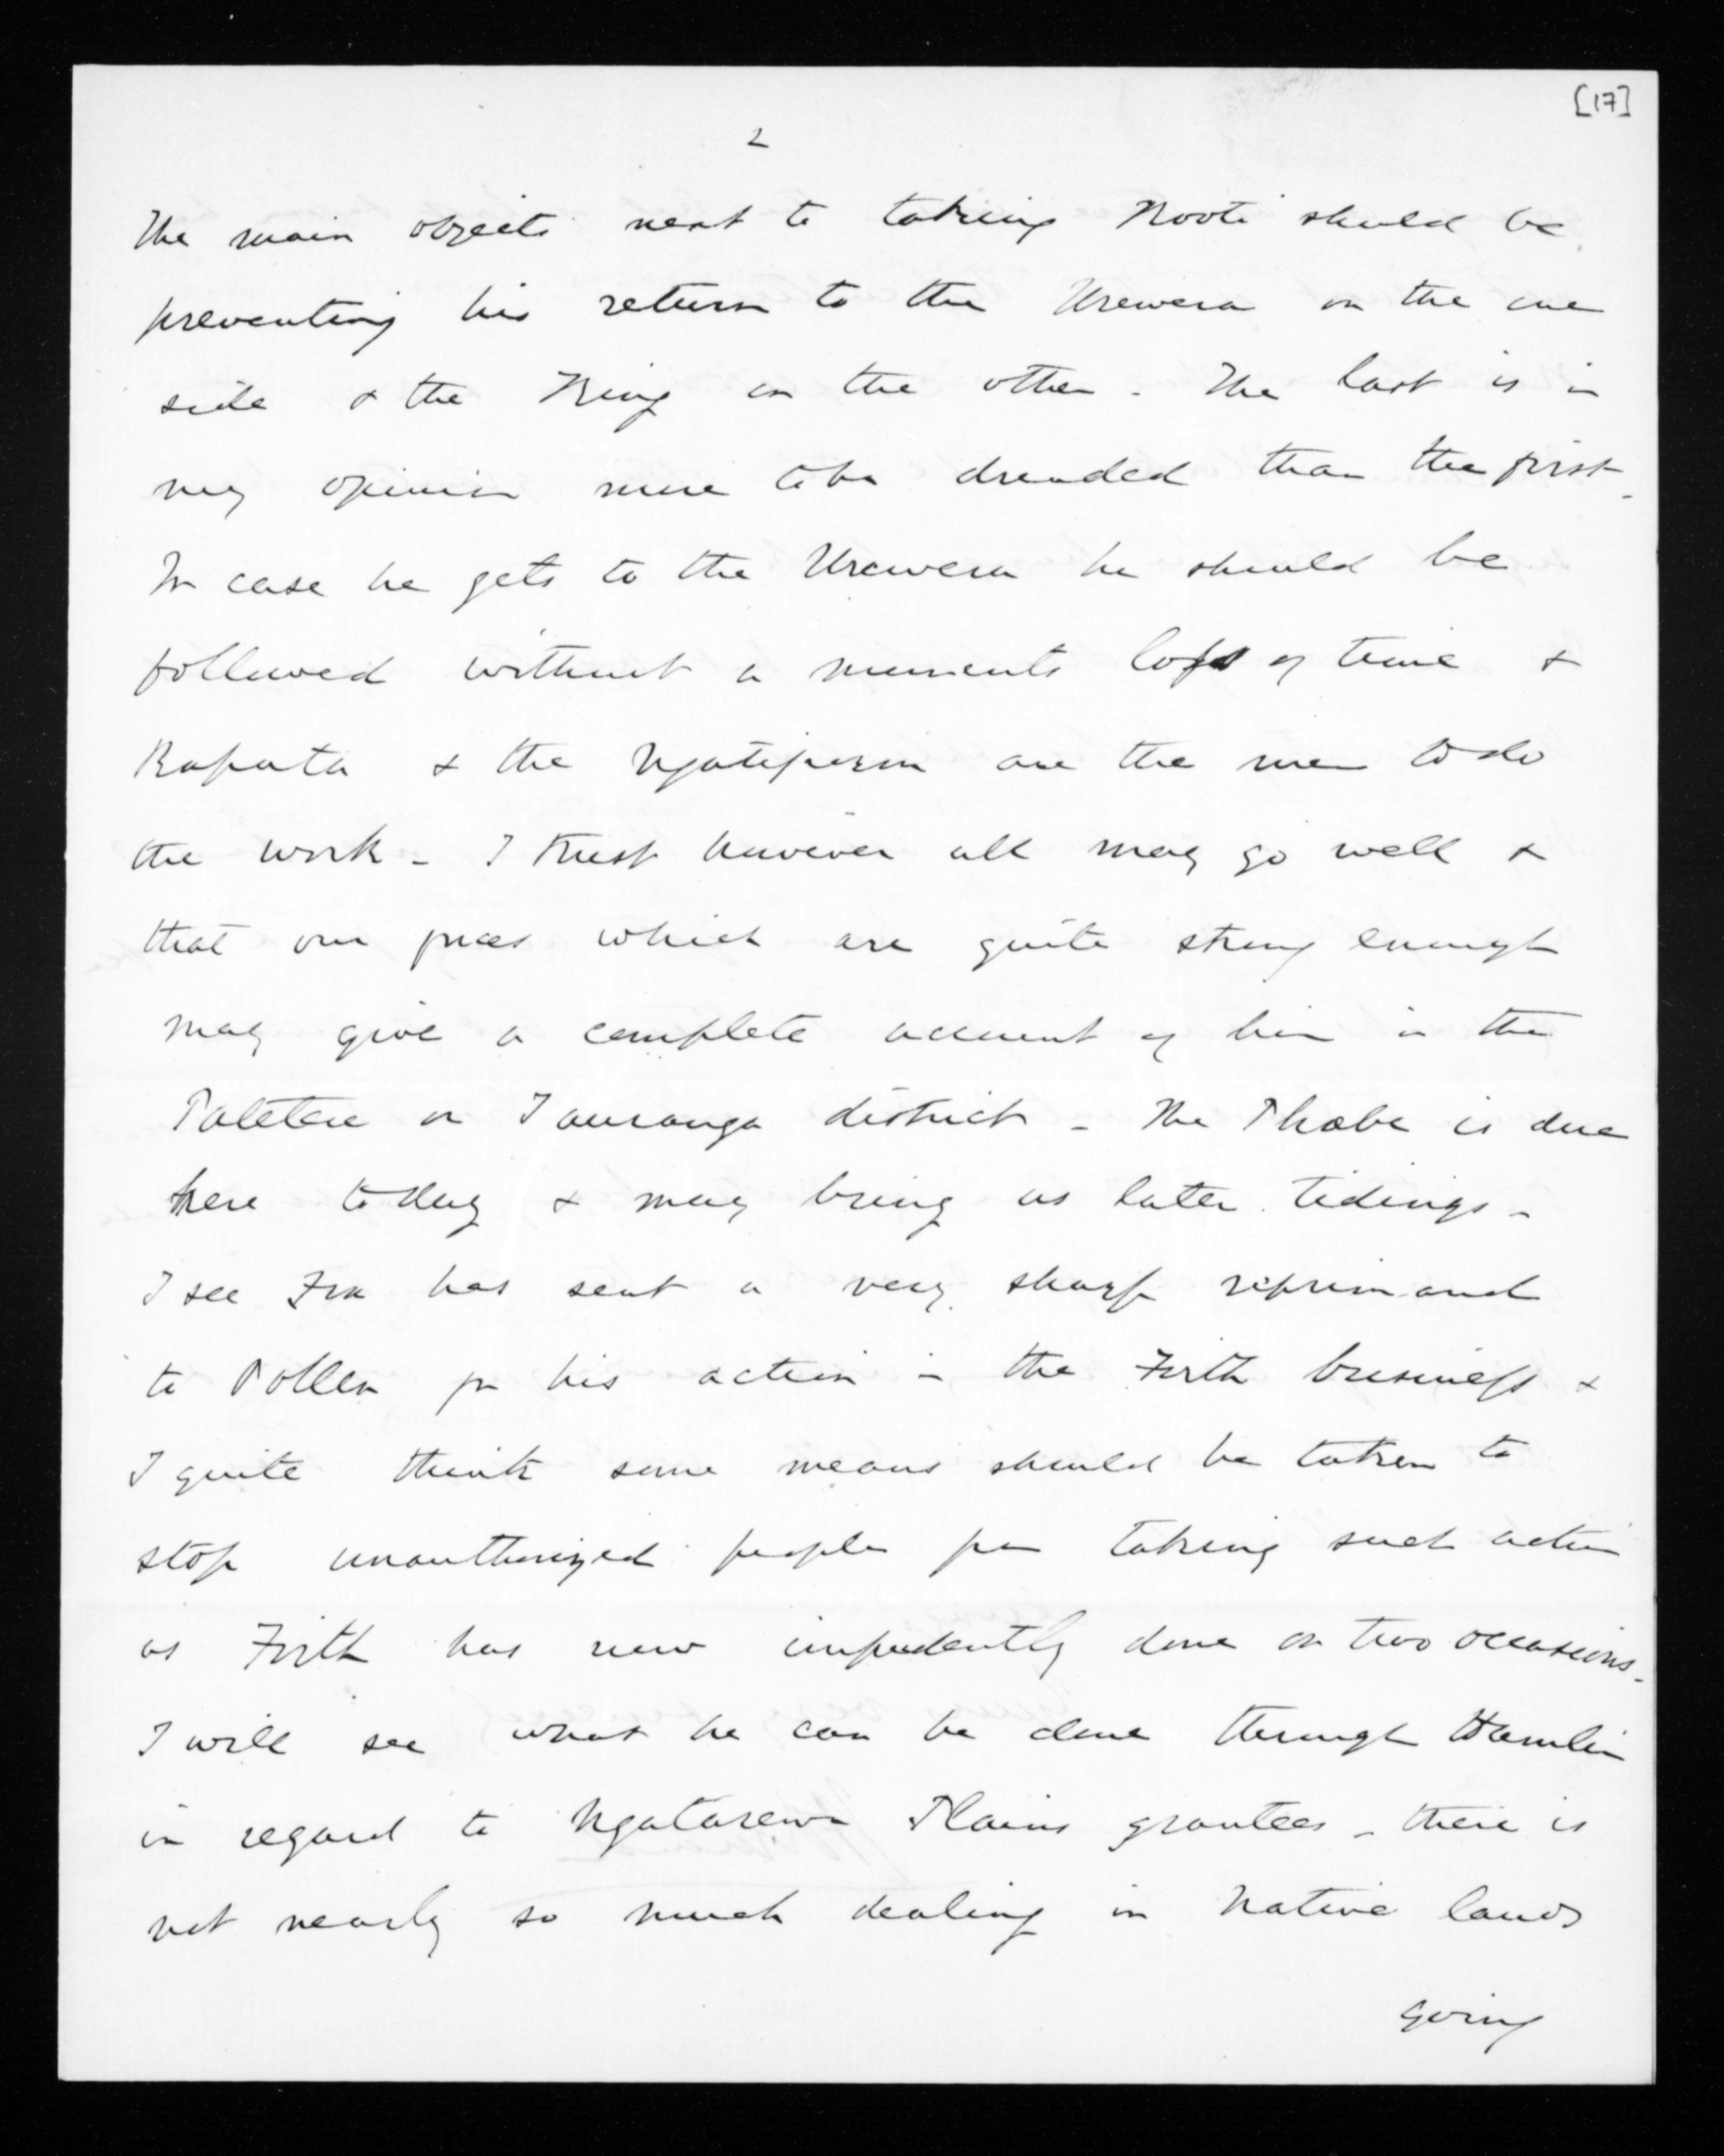 [17]
2
The main objects next to taking Kooti should be
preventing his return to the Urewera on the one
side & the King on the other - The last is in
my opinion more to be dreaded than the first -
In case he gets to the Urewera he should be
followed without a moments loss of time &
Rapata & the Ngatiporou are the men to do
the work - I trust however all may go well &
that our forces which are quite strong enough
may give a complete account of him in the
Patetere or Tauranga district - The Phoebe is due
here today & may bring us later tidings -
I see Fox has sent a very sharp reprimand
to Pollen for his action in the Firth business &
I quite think some means should be taken to
stop unauthorized people from taking such action
as Firth has now impudently done on two occasions -
I will see what he can be done through Hamlin
in regard to Ngatarawa Plains grantees - there is
not nearly so much dealing in Native lands
going